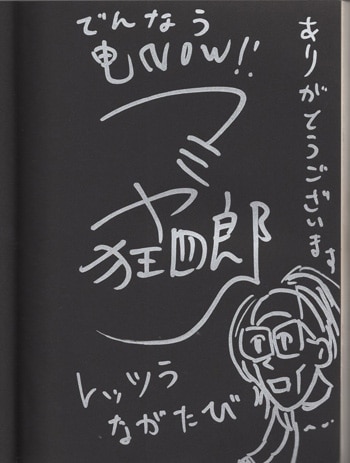 ありがとうございます
でんなう
電NOW!!
マミヤ
狂四郎
レッツら
ながたび